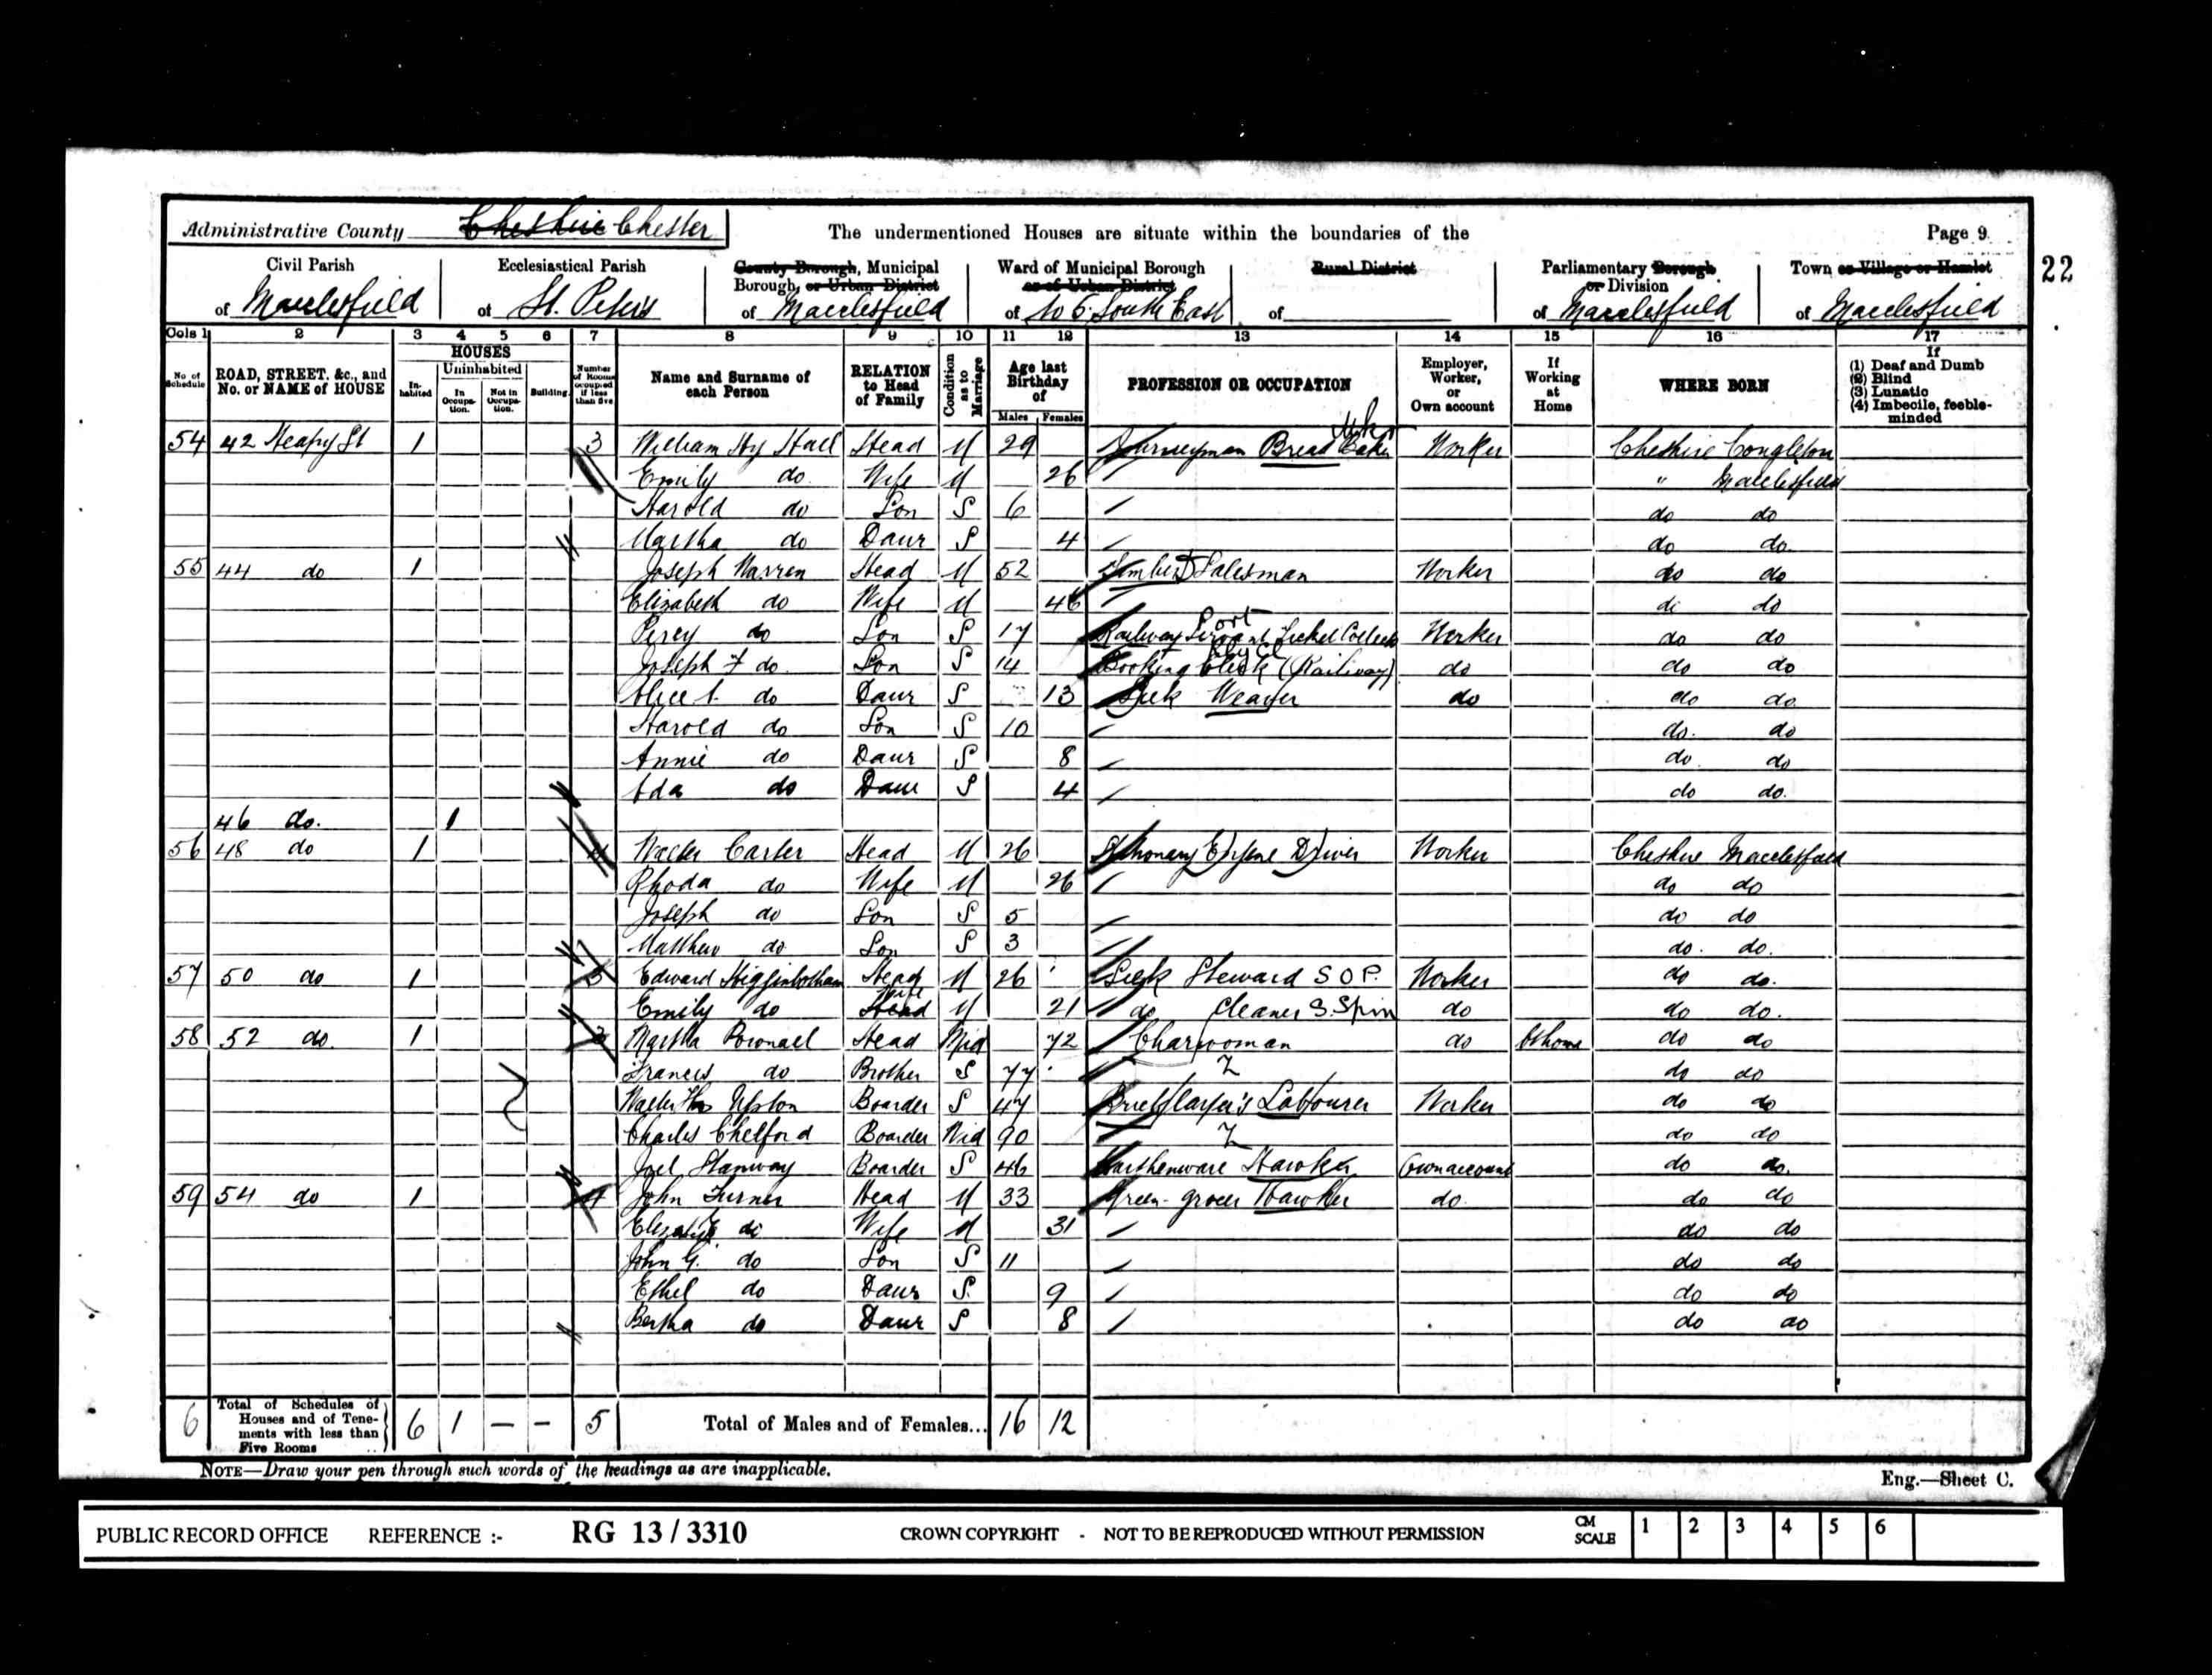 Administrative County Cheshire Chester The undermentioned Houses are situate within the boundaries of the Page 9
22
Civil Parish of Macclesfield
Ecclesiastical Parish of St. Peter's
County Borough, Municipal Borough, or Urban District of Macclesfield
Ward of Municipal Borough or of Urban District of No 5. South East
Rural District of
Parliamentary Borough or Division of Macclesfield
Town or Village or Hamlet of Macclesfield
Cols 1 2 3 4 5 6 7 8 9 10 11 12 13 14 15 16 17
No of Schedule
ROAD, STREET, &c., and No. or NAME of HOUSE
HOUSES
In-habited
Uninhabited
In Occupa-tion.
Not in Occupa-tion.
Building.
Number of Rooms occupied if less than five
Name and Surname of each Person
RELATION to Head of Family
Condition as to Marriage
Age last Birthday of
Males Females
PROFESSION OR OCCUPATION
Employer, Worker, or Own account
If Working at Home
WHERE BORN
If
(1) Deaf and Dumb
(2) Blind
(3) Lunatic
(4) Imbecile, feeble-minded
54 42 Heapy St 1 3 William Hy Hall Head M 29 Journeyman Bread Baker Worker Cheshire Congleton
Emily do Wife M 26 " Macclesfield
Harold do Son S 6 do do
Martha do Daur S 4 do do
55 44 do 1 Joseph Warren Head M 52 Timber Salesman Worker do do
Elizabeth do Wife M 46 do do
Percy do Son S 17 Railway Servant Ticket Collect Port Worker do do
Joseph F do Son S 14 Booking Clerk (Railway) Rly Cl do do do
Alice A. do Daur S 13 Silk Weaver do do do
Harold do Son S 10 do. do
Annie do Daur S 8 do do
Ada do Daur S 4 do do.
46 do. 1
56 48 do 1 4 Walter Carter Head M 26 Stationary Engine Driver Worker Cheshire Macclesfield
Rhoda do Wife M 26 do do
Joseph do Son S 5 do do
Matthew do Son S 3 do. do.
57 50 do 1 3 Edward Higginbotham Head M 26 Silk Steward S O P. Worker do do.
Emily do Head Wife M 21 do Cleaner S. Spin do do do.
58 52 do. 1 3 Martha Pownall Head Wid 72 Charwoman do At home do do
Francis do Brother S 77 do do
Walter Upton Boarder S 47 Bricklayer's Labourer Worker do do
Charles Chelford Boarder Wid 90 do do
Joel Stanway Boarder S 46 Earthenware Hawker Own account do do.
59 54 do 1 4 John Turner Head M 33 Green-grocer Hawker do. do do
do Wife M 31 do do
John G. do Son S 11 do do
Ethel do Daur S. 9 do do
Bertha do Daur S 8 do do
6 Total of Schedules of Houses and of Tene-ments with less than Five Rooms .. 6 1 — – 5 Total of Males and of Females... 16 12
NOTE—Draw your pen through such words of the headings as are inapplicable.
Eng.—Sheet C.
PUBLIC RECORD OFFICE REFERENCE :- RG 13 / 3310 CROWN COPYRIGHT - NOT TO BE REPRODUCED WITHOUT PERMISSION CM SCALE 1 2 3 4 5 6